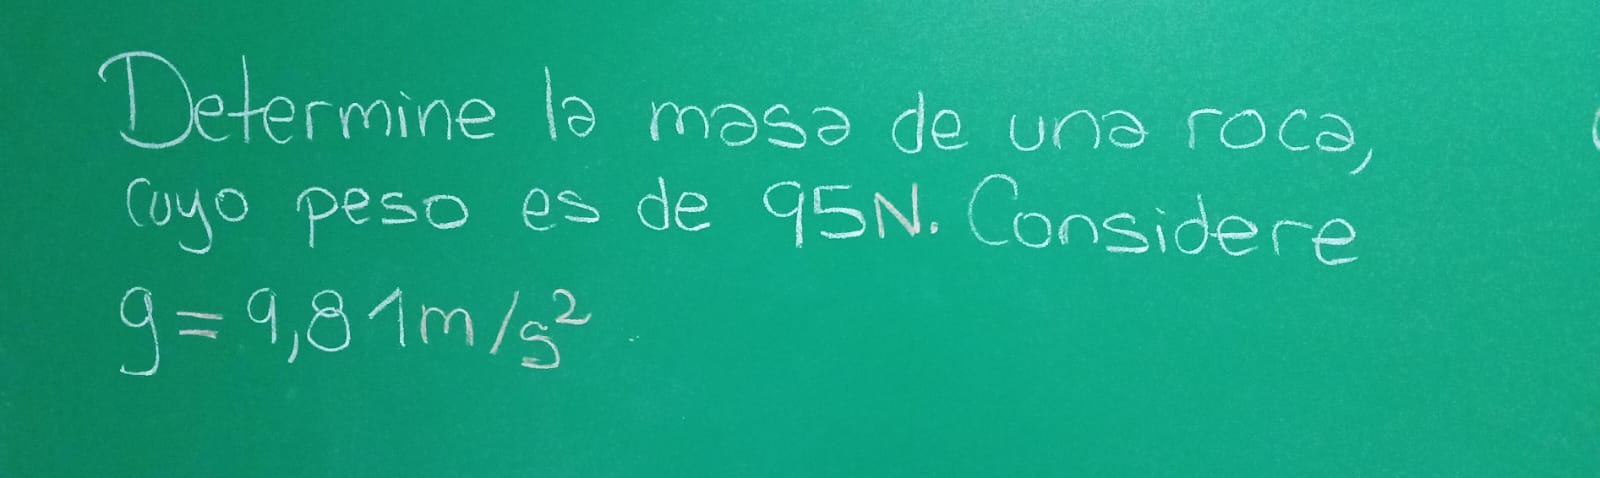 Determine la masa de una roca,
cuyo peso es de 95N. Considere
g = 9,81m/s²